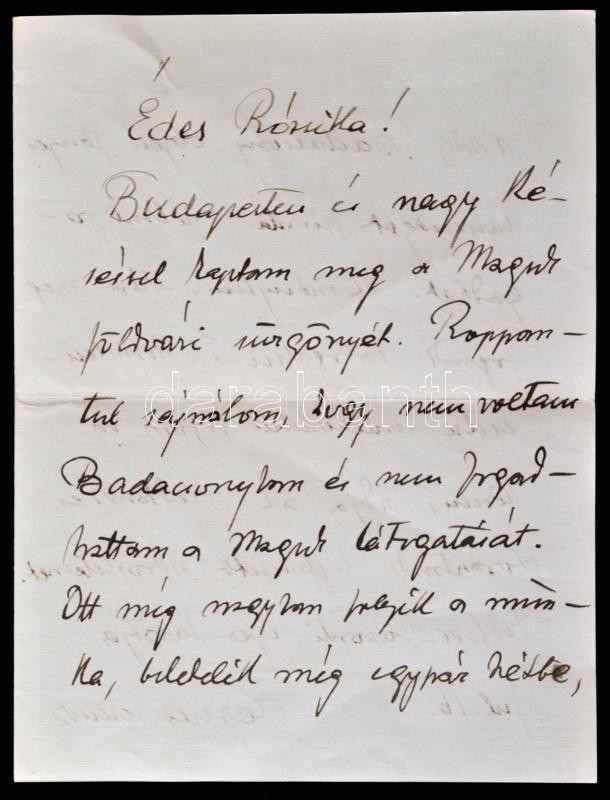 Édes Rózsika!
Budapesten és nagy ké-
séssel kaptam meg a Maguk
földvári sürgönyét. Roppan-
tul sajnálom, hogy nem voltam
darabanth
Badacsonyban és nem fogad-
hattam a Maguk látogatását.
Ott még nagyban folyik a mun-
ka, beletelik még egypár hétbe,